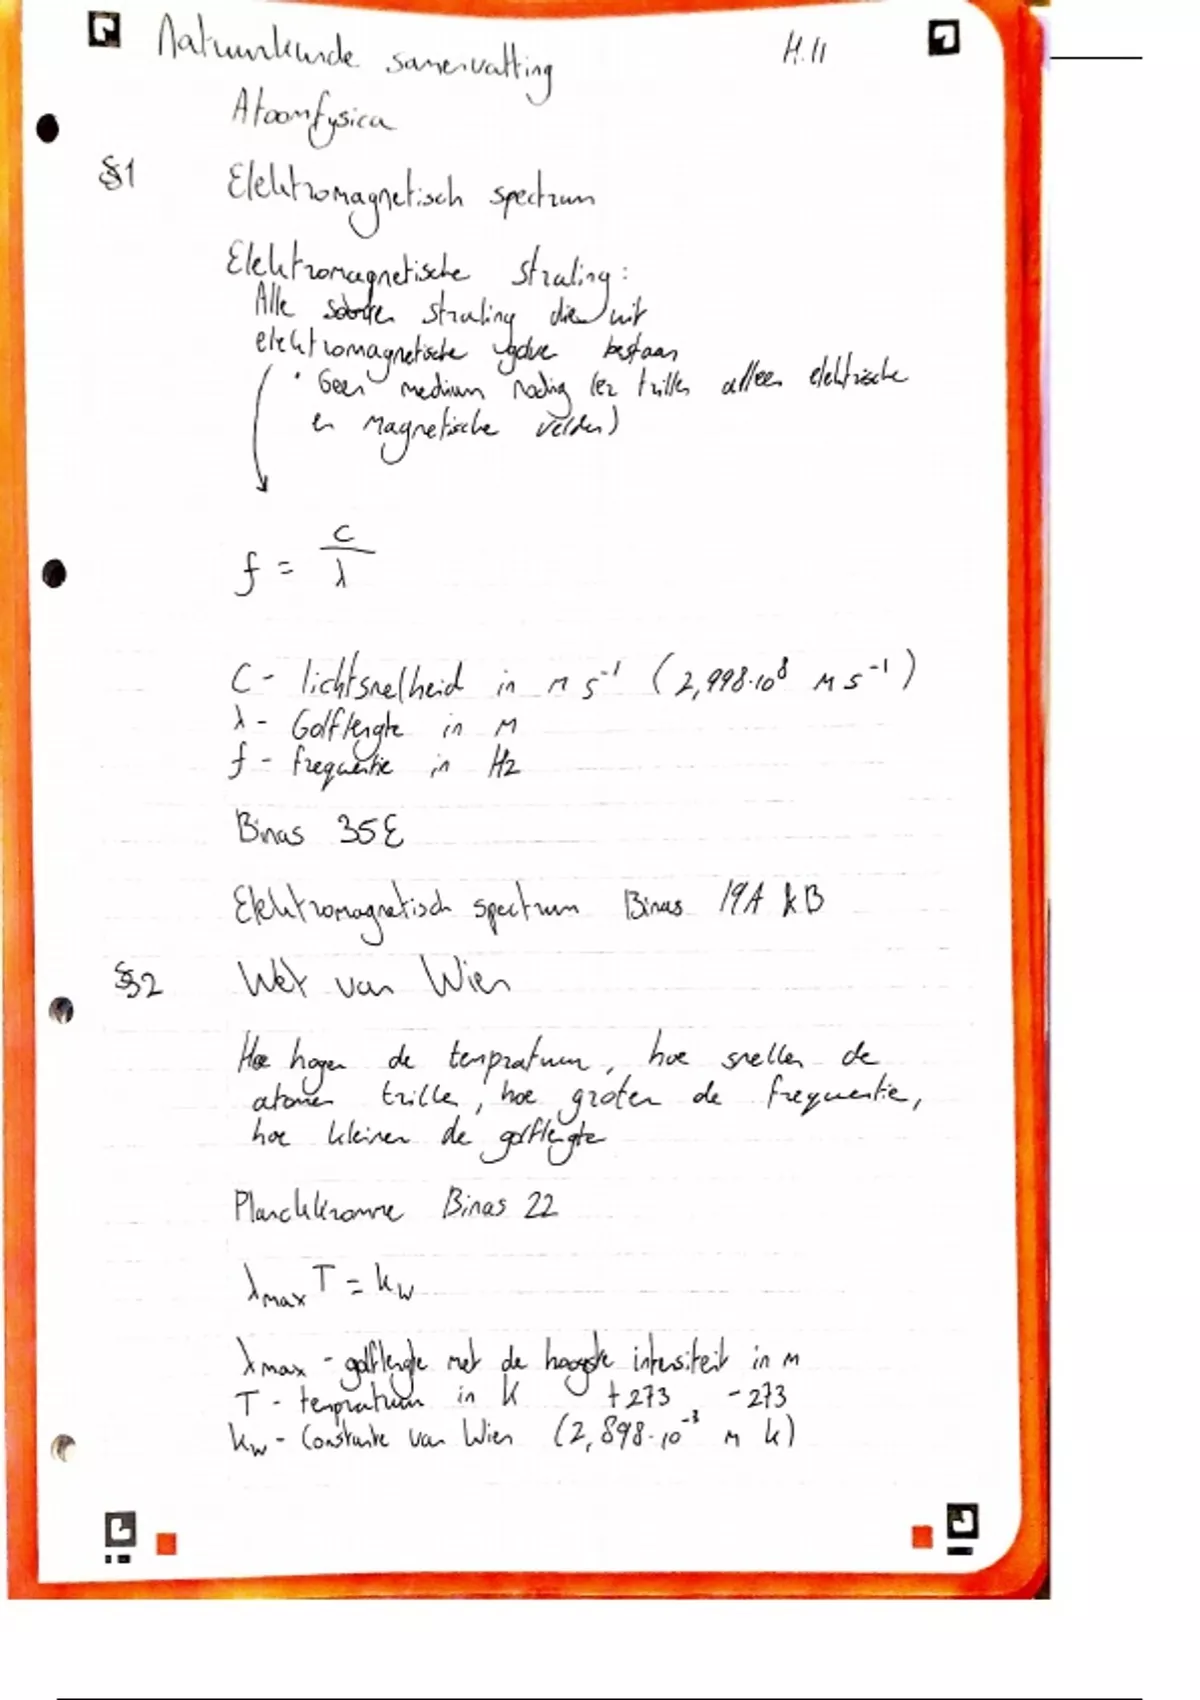 Natuurkunde samenvatting H.11
Atoomfysica
§1 Elektromagnetisch spectrum
Elektromagnetische straling:
Alle soorten straling die uit
elektromagnetische golven bestaan
• Geen medium nodig (er trillen alleen elektrische
en magnetische velden)
f = c/λ
C - lichtsnelheid in m s⁻¹ (2,998·10⁸ m s⁻¹)
λ - Golflengte in m
f - frequentie in Hz
Binas 35E
Elektromagnetisch spectrum Binas 19A & B
§2 Wet van Wien
Hoe hoger de tempratuur, hoe sneller de
atomen trillen, hoe groter de frequentie,
hoe kleiner de golflengte
Planckkromme Binas 22
λmax T = kw
λmax - golflengte met de hoogste intensiteit in m
T - tempratuur in K +273 -273
kw - Constante van Wien (2,898·10⁻³ m K)